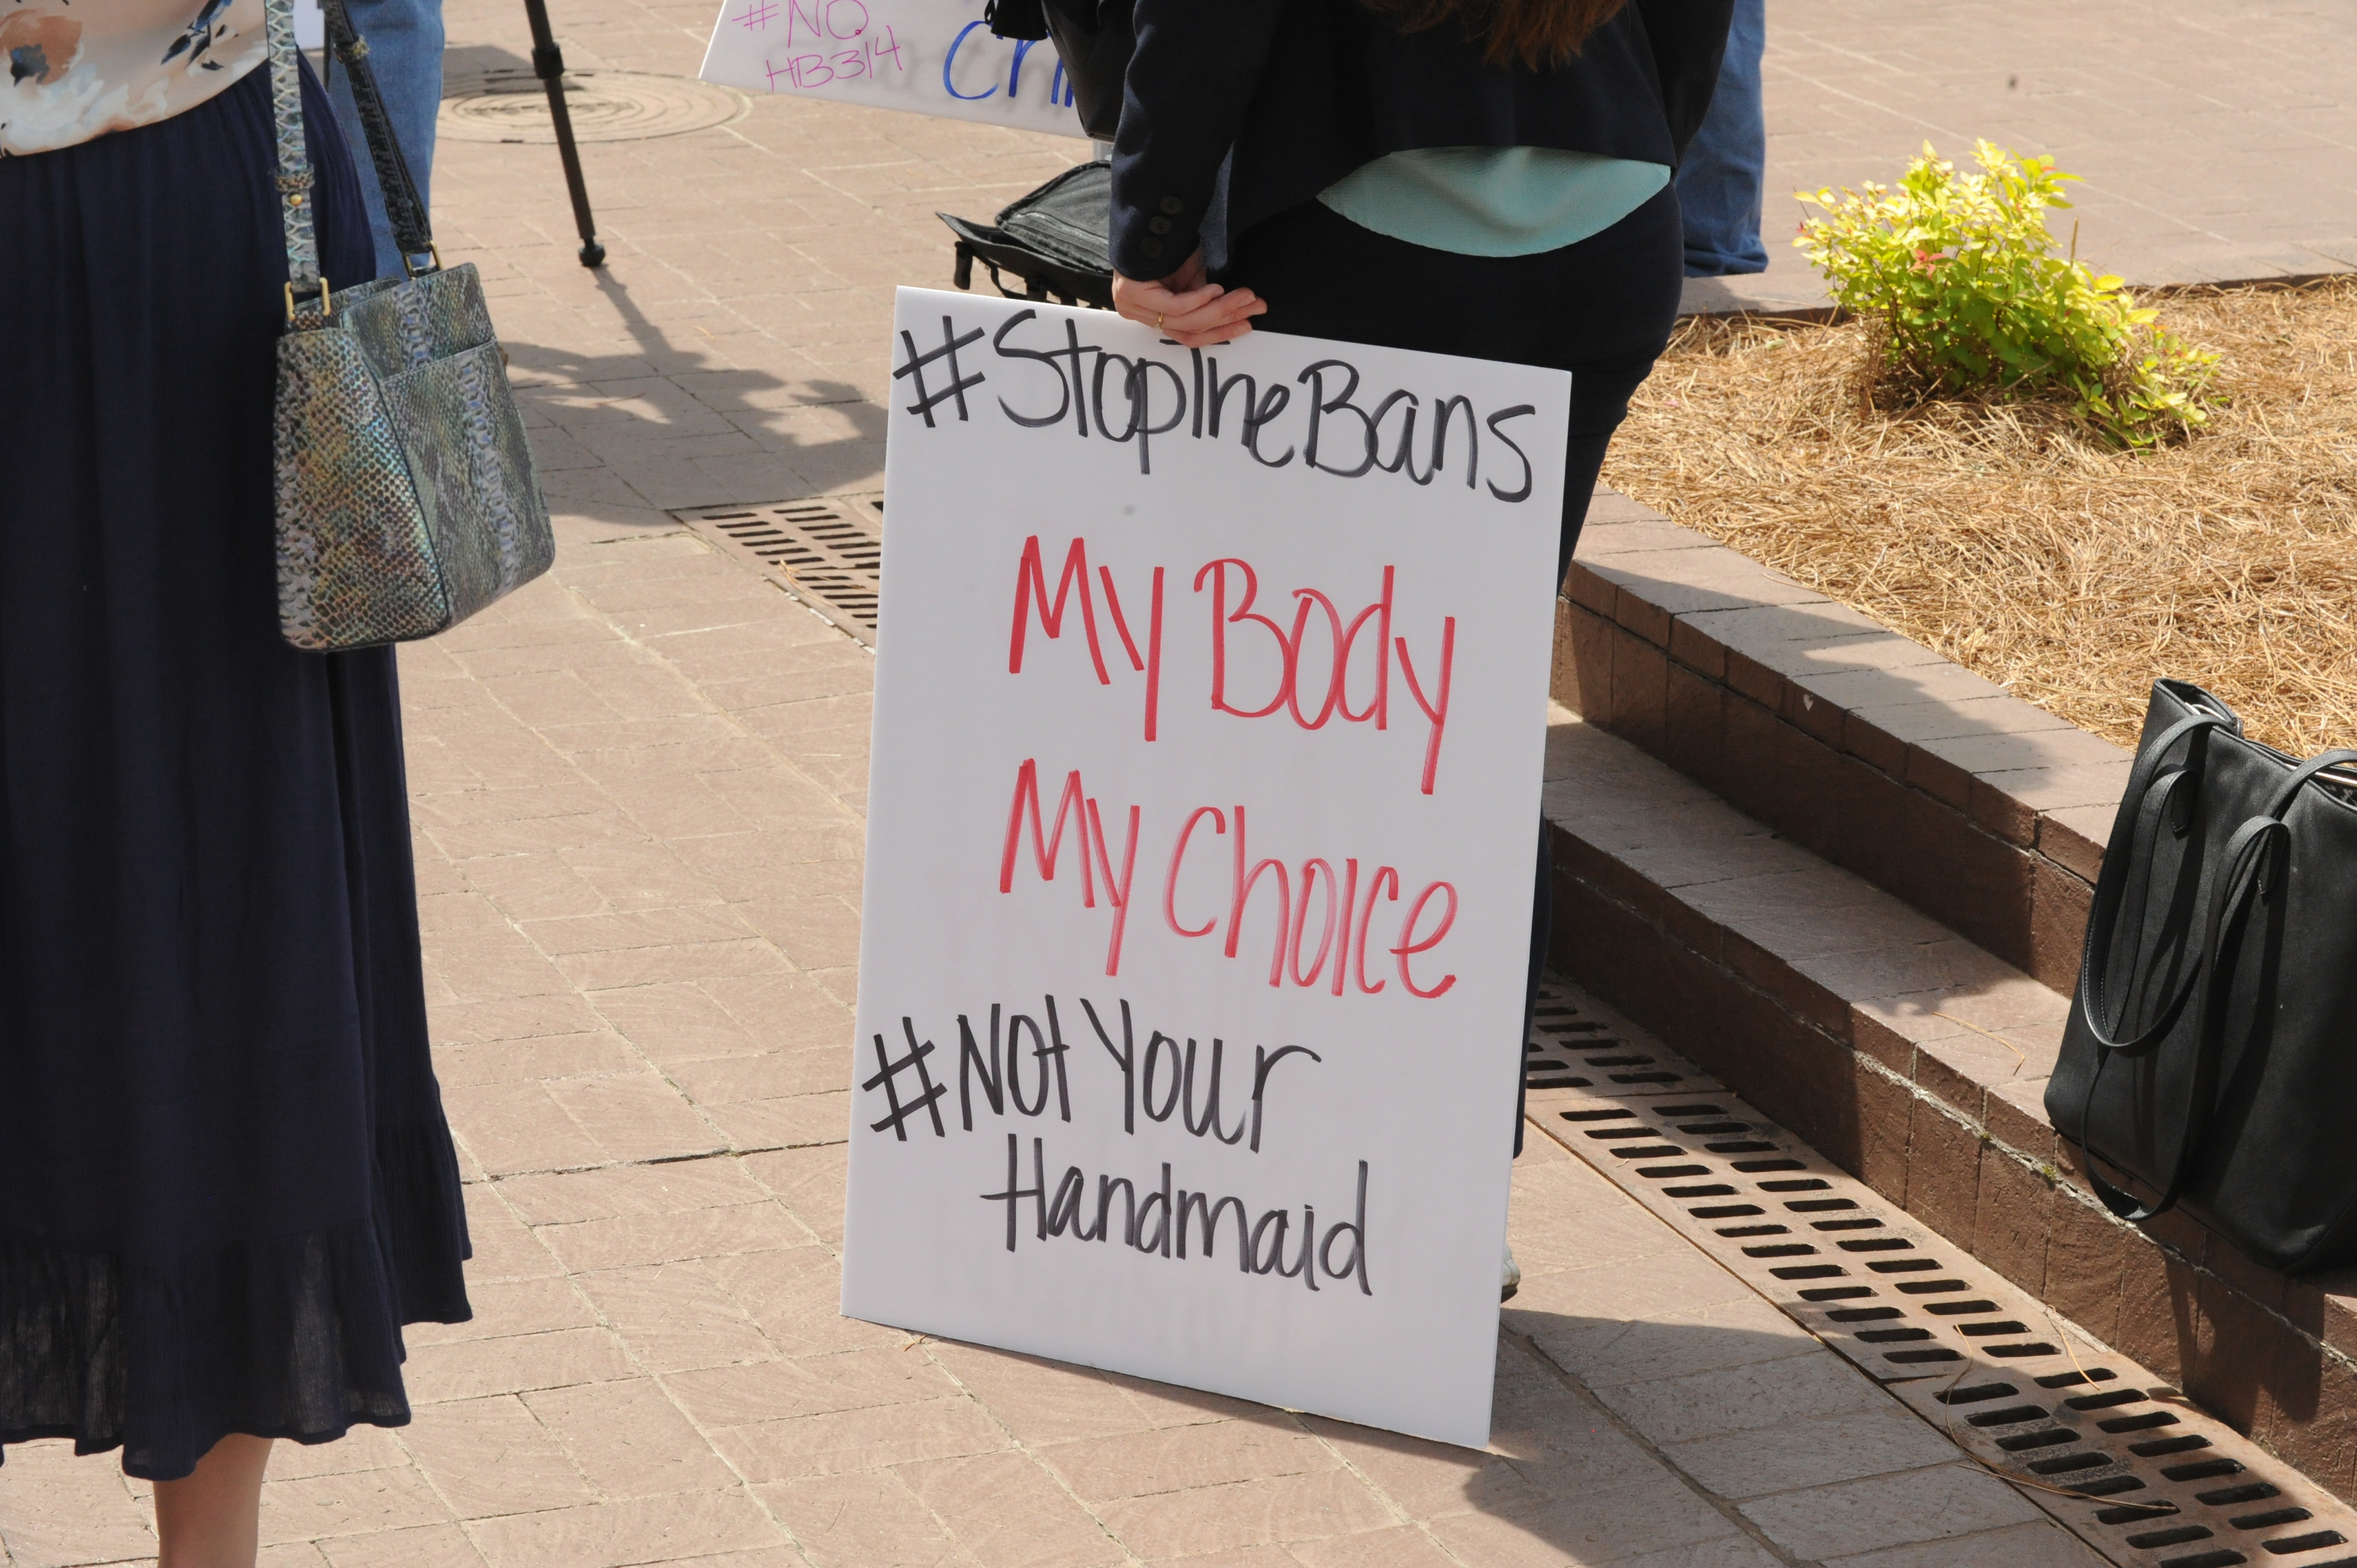 #NO
HB314
#StopTheBans
My Body
My Choice
#Not Your
Handmaid